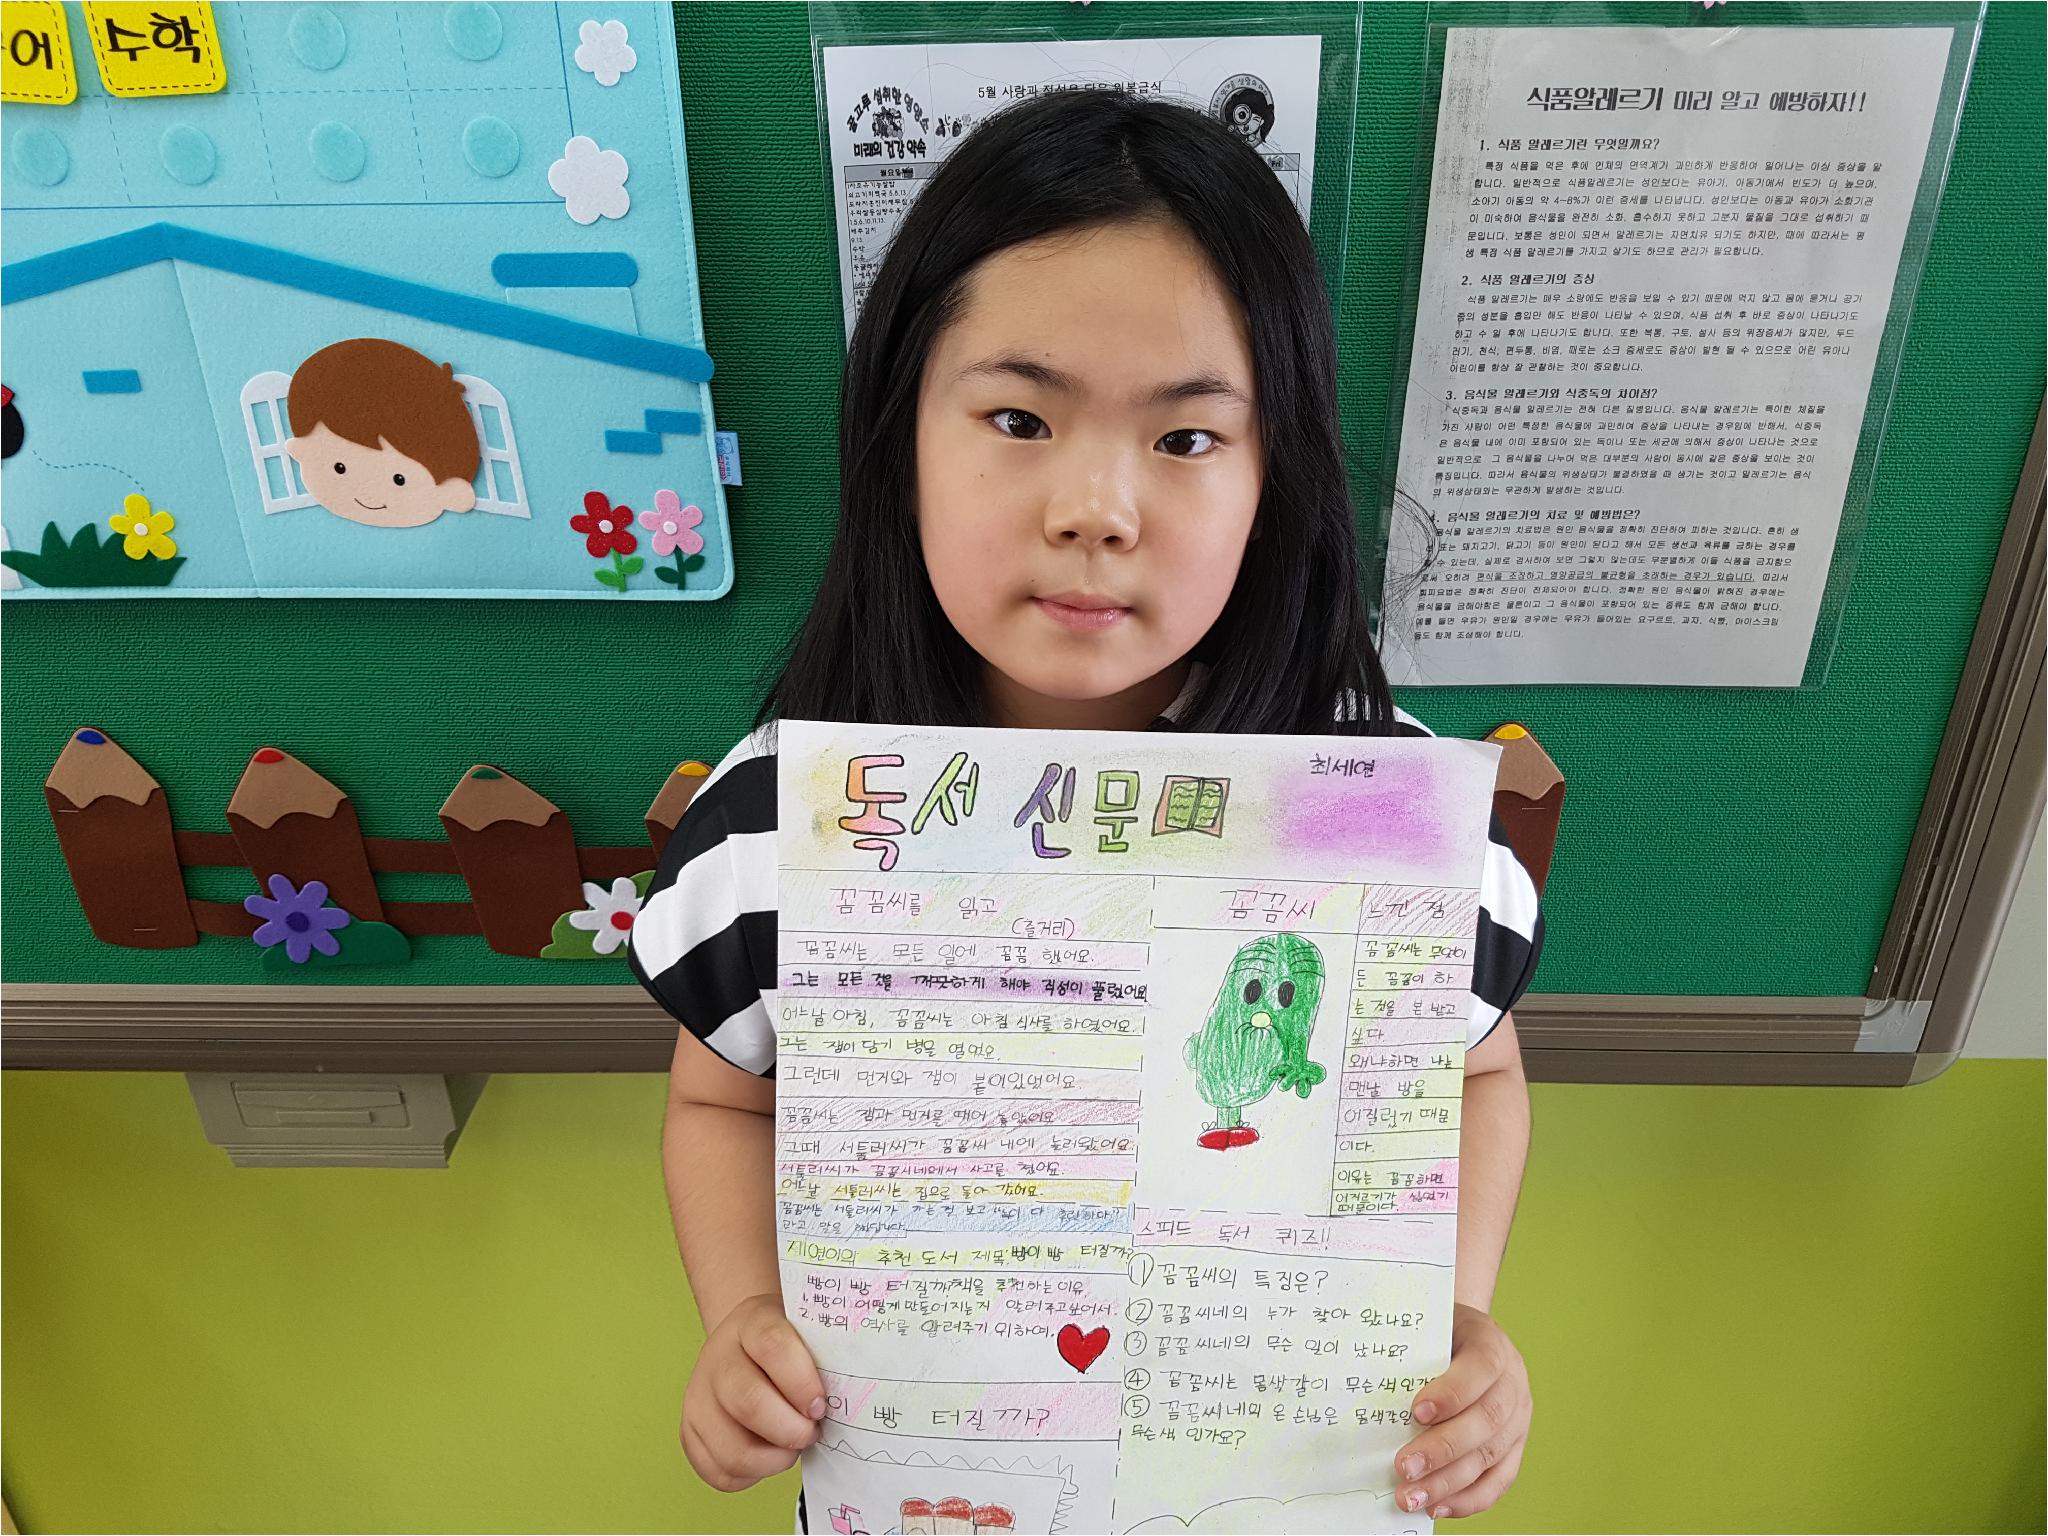 어
수학
5월 사랑과 정성을 담은 원봉급식
골고루 섭취한 영양소
미래의 건강 약속
월요일
배추김치
9.13
수박
우유
Fri
식품알레르기 미리 알고 예방하자!!
1. 식품 알레르기란 무엇일까요?
특정 식품을 먹은 후에 인체의 면역계가 과민하게 반응하여 일어나는 이상 증상을 말
합니다. 일반적으로 식품알레르기는 성인보다는 유아기, 아동기에서 빈도가 더 높으며,
소아기 아동의 약 4~8%가 이런 증세를 나타냅니다. 성인보다는 아동과 유아가 소화기관
이 미숙하여 음식물을 완전히 소화, 흡수하지 못하고 고분자 물질을 그대로 섭취하기 때
문입니다. 보통은 성인이 되면서 알레르기는 자연치유 되기도 하지만, 때에 따라서는 평
생 특정 식품 알레르기를 가지고 살기도 하므로 관리가 필요합니다.
2. 식품 알레르기의 증상
식품 알레르기는 매우 소량에도 반응을 보일 수 있기 때문에 먹지 않고 몸에 묻거나 공기
중의 성분을 흡입만 해도 반응이 나타날 수 있으며, 식품 섭취 후 바로 증상이 나타나기도
하고 수 일 후에 나타나기도 합니다. 또한 복통, 구토, 설사 등의 위장증세가 많지만, 두드
러기, 천식, 편두통, 비염, 때로는 쇼크 증세로도 증상이 발현 될 수 있으므로 어린 유아나
어린이를 항상 잘 관찰하는 것이 중요합니다.
3. 음식물 알레르기와 식중독의 차이점?
식중독과 음식물 알레르기는 전혀 다른 질병입니다. 음식물 알레르기는 특이한 체질을
가진 사람이 어떤 특정한 음식물에 과민하여 증상을 나타내는 경우임에 반해서, 식중독
은 음식물 내에 이미 포함되어 있는 독이나 또는 세균에 의해서 증상이 나타나는 것으로
일반적으로 그 음식물을 나누어 먹은 대부분의 사람이 동시에 같은 증상을 보이는 것이
특징입니다. 따라서 음식물의 위생상태가 불결하였을 때 생기는 것이고 알레르기는 음식
의 위생상태와는 무관하게 발생하는 것입니다.
4. 음식물 알레르기의 치료 및 예방법은?
음식물 알레르기의 치료법은 원인 음식물을 정확히 진단하여 피하는 것입니다. 흔히 생
또는 돼지고기, 닭고기 등이 원인이 된다고 해서 모든 생선과 육류를 금하는 경우를
수 있는데, 실제로 검사하여 보면 그렇지 않는데도 무분별하게 이들 식품을 금지함으
로써 오히려 편식을 조장하고 영양공급의 불균형을 초래하는 경우가 있습니다. 따라서
회피요법은 정확히 진단이 전제되어야 합니다. 정확한 원인 음식물이 밝혀진 경우에는
음식물을 금해야함은 물론이고 그 음식물이 포함되어 있는 종류도 함께 금해야 합니다.
예를 들면 우유가 원인일 경우에는 우유가 들어있는 요구르트, 과자, 식빵, 아이스크림
등도 함께 조심해야 합니다.
독서 신문
최세연
꼼꼼씨를 읽고
(줄거리)
꼼꼼씨는 모든 일에 꼼꼼 했어요.
그는 모든 것을 깨끗하게 해야 직성이 풀렸어요
어느날 아침, 꼼꼼씨는 아침식사를 하였어요.
그는 잼이 담긴 병을 열었요.
그런데 먼거와 잼이 붙어있었어요.
꼼꼼씨는 잼과 먼거를 떼어 놓았어요
그때 서툴러씨가 꼼꼼씨 네에 놀러왔어요.
서툴러씨가 꼼꼼씨네에서 사고를 쳤어요.
어느날 서툴러씨는 집으로 돌아 갔어요.
꼼꼼씨는 서툴러씨가 가는 걸 보고
라고 말을 했답니다.
세연이의 추천 도서 제목:빵이 빵 터질까?
빵이 빵 터질까?책을 추천하는 이유.
1. 빵이 어떻게 만들어지는지 알려주고싶어서.
2. 빵의 역사를 알려주기 위하여.
이 빵 터질까?
꼼꼼씨
느낀 점
꼼꼼씨는 무엇이
든 꼼꼼이 하
는 점을 본 받고
싶다.
왜냐하면 나는
맨날 방을
어질렀기 때문
이다.
이유는 꼼꼼하면
어지르기가 싫었기
때문이다.
스피드 독서 퀴즈!!
① 꼼꼼씨의 특징은?
② 꼼꼼씨네의 누가 찾아 왔나요?
③ 꼼꼼씨네의 무슨 일이 났나요?
④ 꼼꼼씨는 몸색깔이 무슨색인가
⑤ 꼼꼼씨네의 온 손님은 몸색깔은
무슨색 인가요?